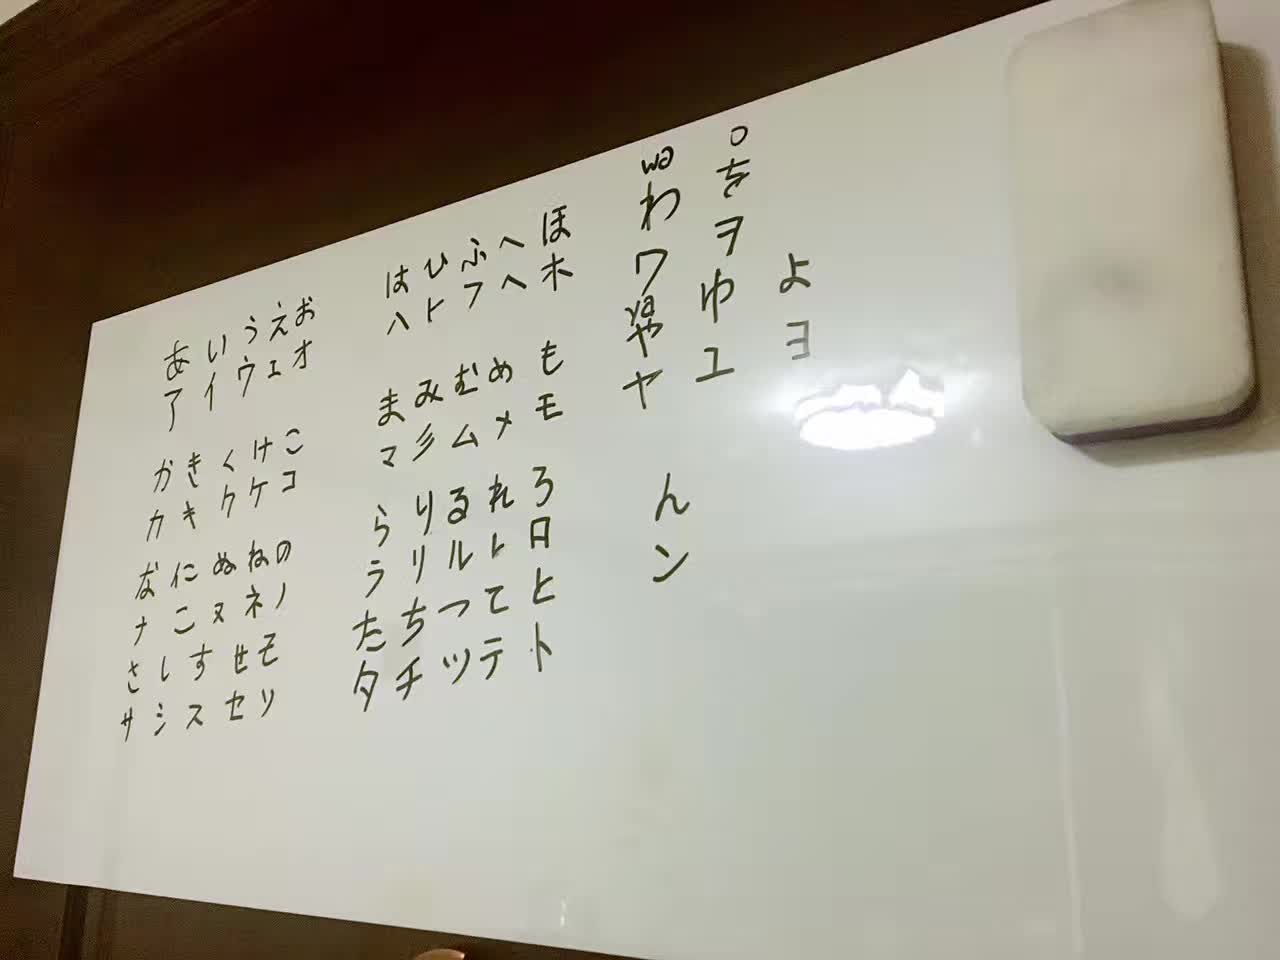 あいうえお
アイウエオ
かきくけこ
カキクケコ
なにぬねの
ナこヌネノ
さしすせそ
サシスセソ
はひふへほ
ハトフヘホ
まみむめも
マミムメモ
らりるれろ
ラリルトロ
たちつてと
タチツテト
wa o
わ を
ワ ヲ
ya
や ゆ よ
ヤ ユ ヨ
ん
ン